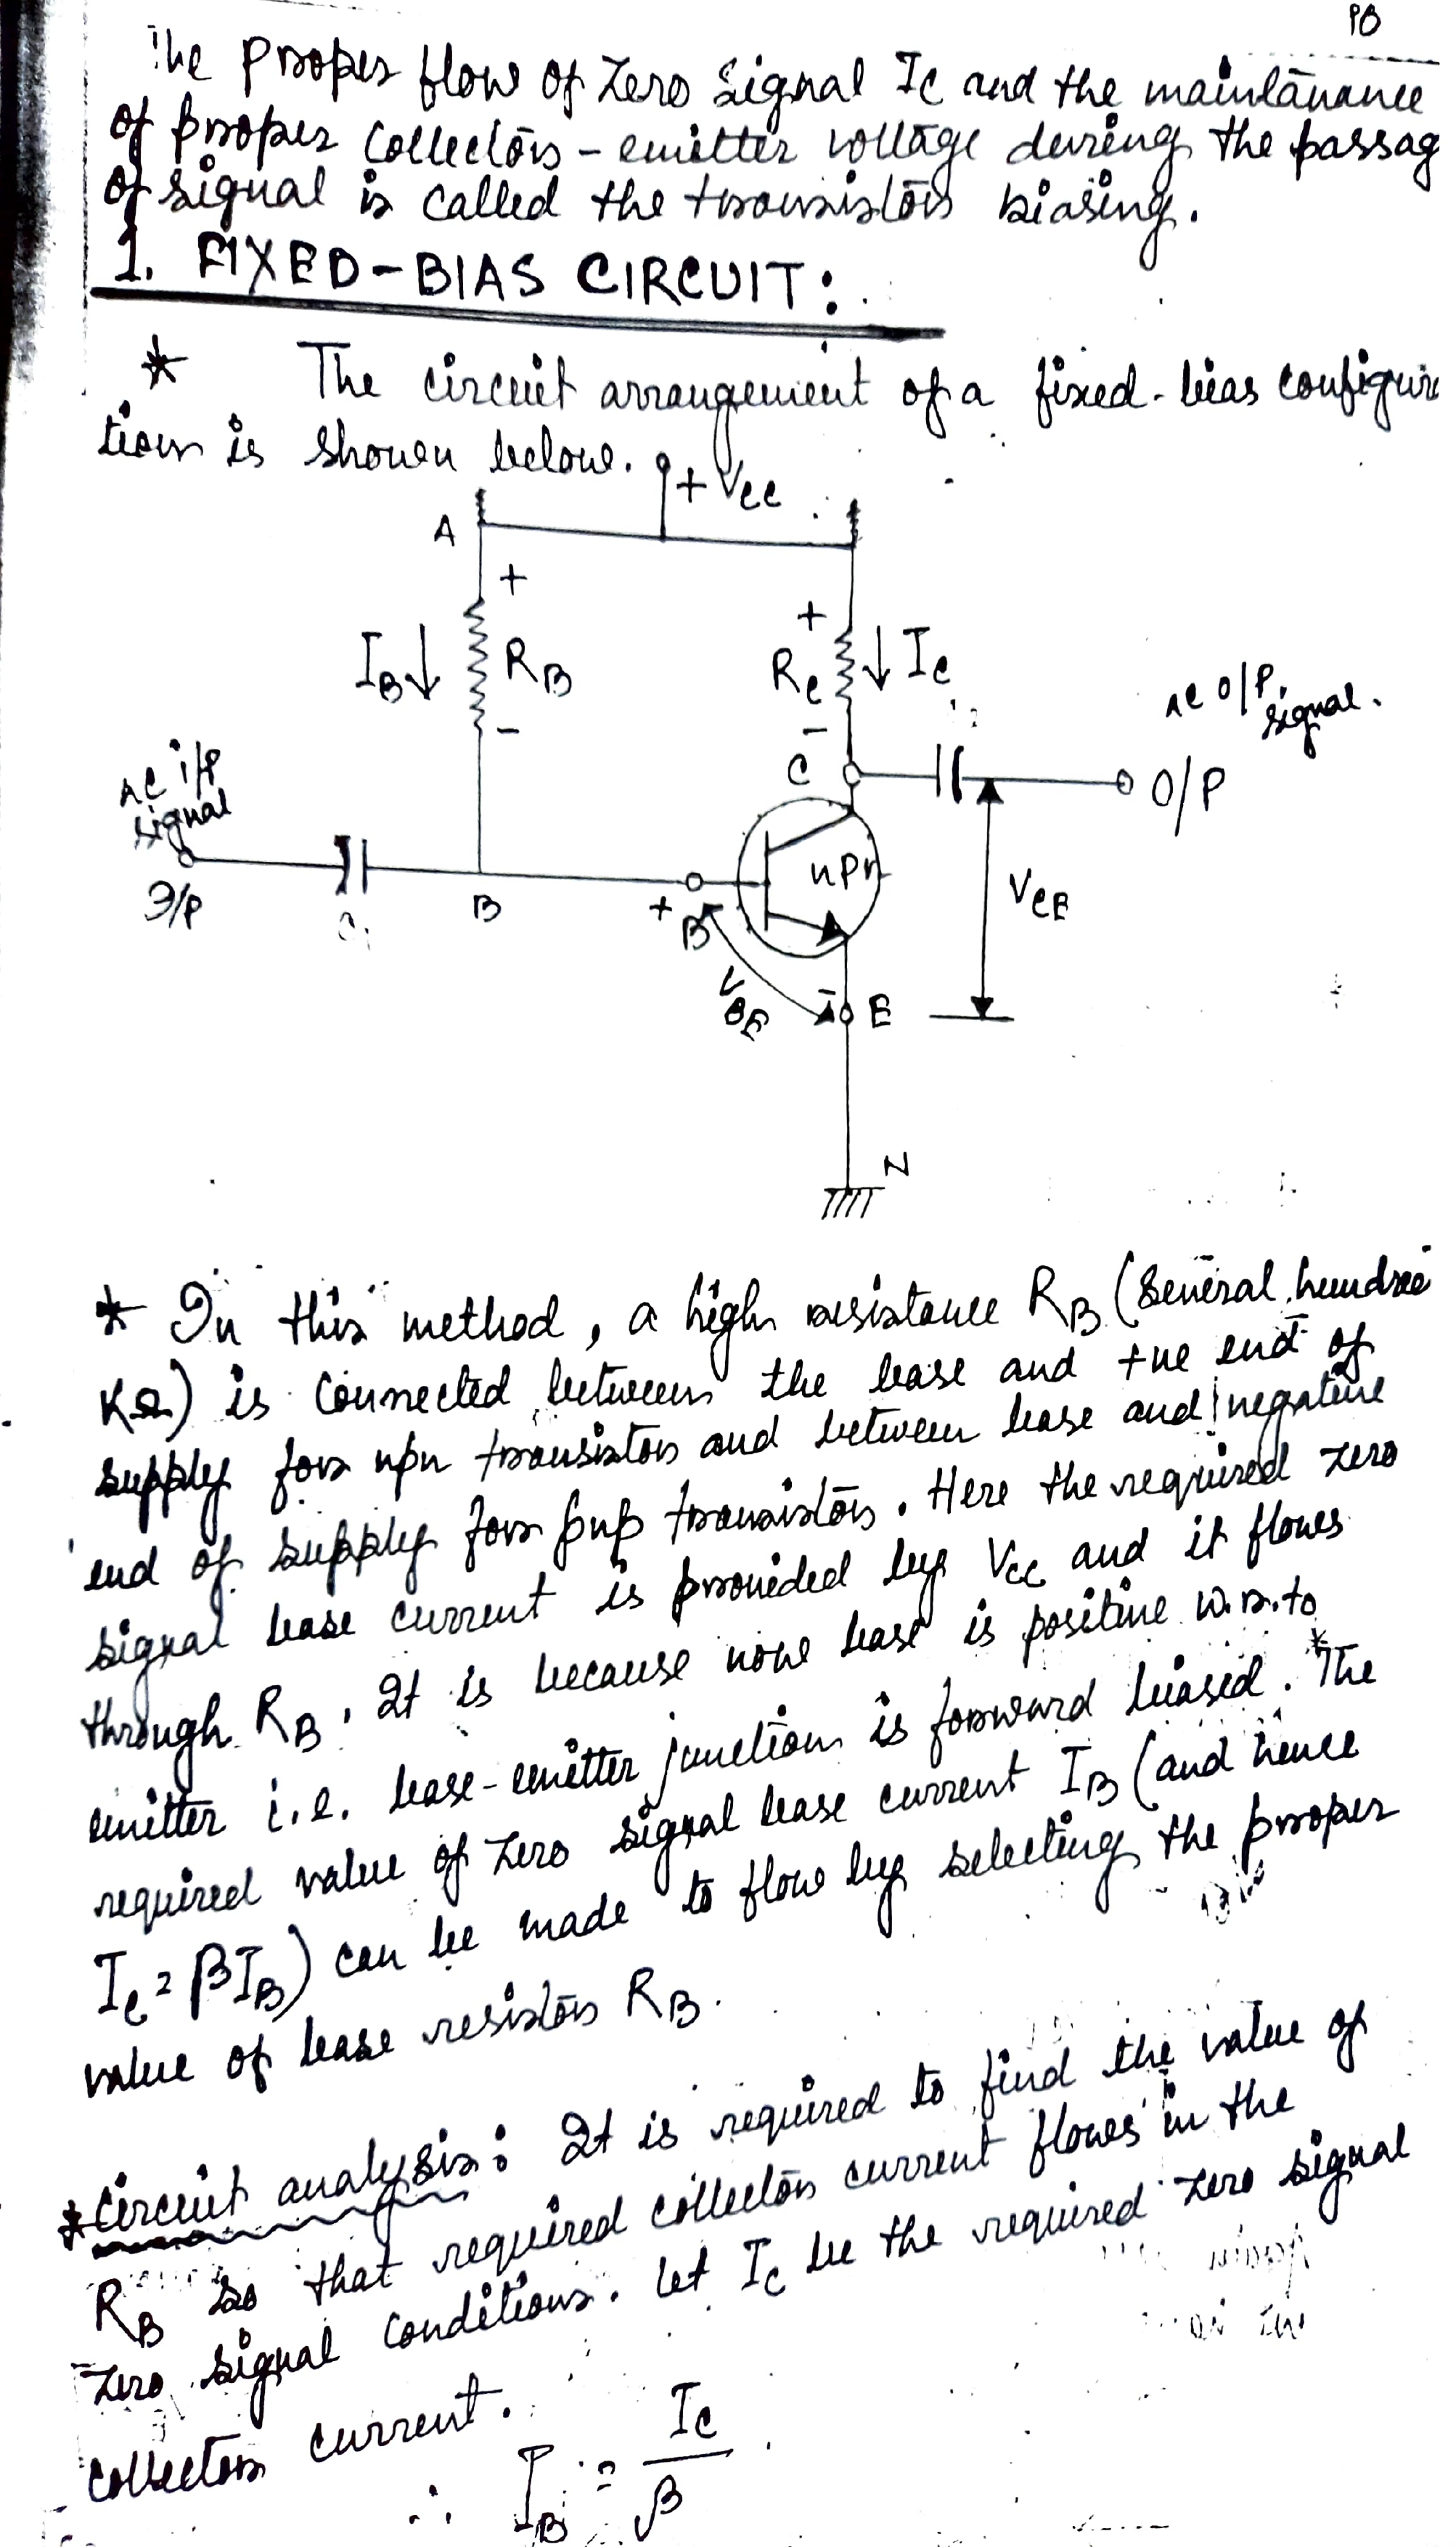 PB
The proper flow of Zero signal IC and the maintanance
of proper collector - emitter voltage during the passag
of signal is called the transistor biasing.
1. FIXED-BIAS CIRCUIT:
* The circuit arrangement of a fixed-bias configura
tion is shown below.
+VCC
A
+
+
IB↓ RB
RC ↓IC
-
-
AC O/P
signal.
C
O/P
AC i/P
signal
I/P
C1
B
+
B
npn
VCE
VBE
-
E
N
* In this method, a high resistance RB (several hundred
KΩ) is connected between the base and +ve end of
supply for npn transistor and between base and negative
end of supply for pnp transistor. Here the required zero
signal base current is provided by VCC and it flows
through RB. It is because now base is positive w.r.to
emitter i.e. base-emitter junction is forward biased. *The
required value of zero signal base current IB (and hence
IC = βIB) can be made to flow by selecting the proper
value of base resistor RB.
*Circuit analysis: It is required to find the value of
RB so that required collector current flows in the
zero signal conditions. Let IC be the required zero signal
collector current.
∴ IB = IC
β